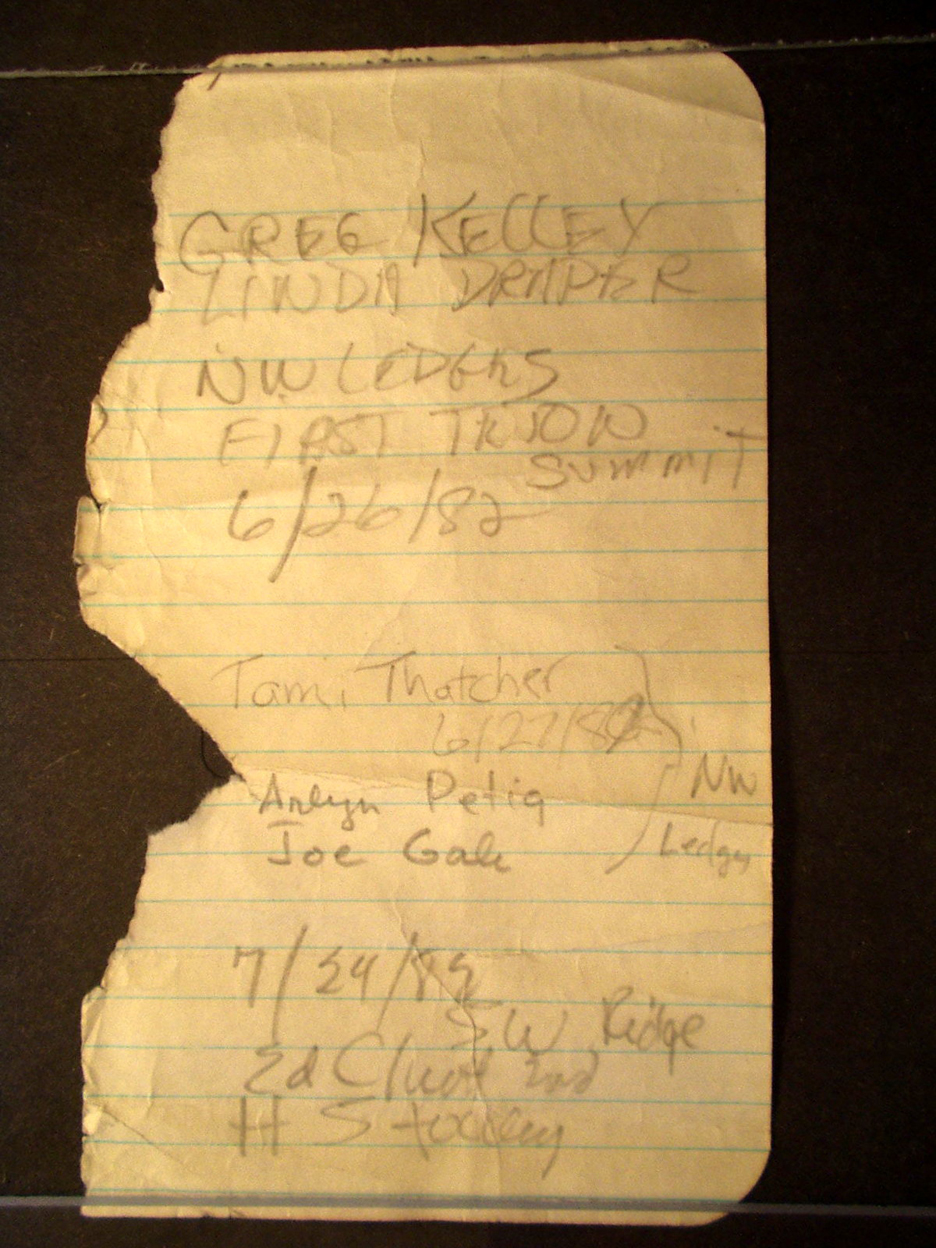 GREG KELLEY
LINDA DRAPER
NW LEDGES
FIRST TRY ON
SUMMIT
6/26/82
Tami Thatcher
6/27/82
NW
Arlyn Petig
Joe Gale
Ledges
7/24/82
SW Ridge
Ed
H